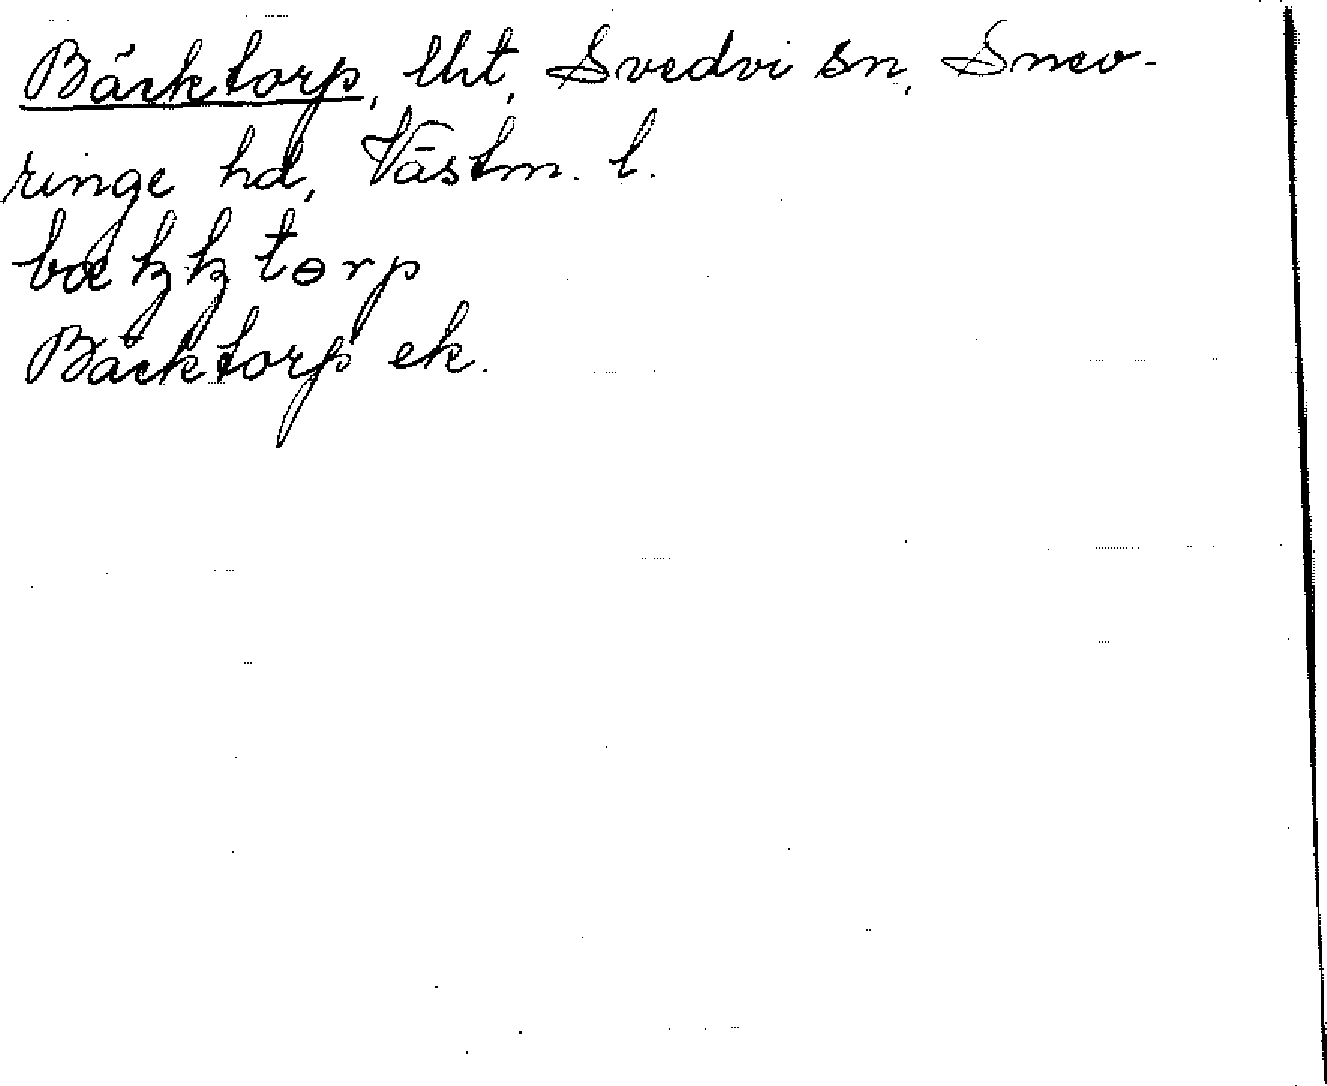 Bäcktorp, lht, Svedvi sn, Snev-
ringe hd, Västm. l.
bækktɵrp
Bäcktorp ek.